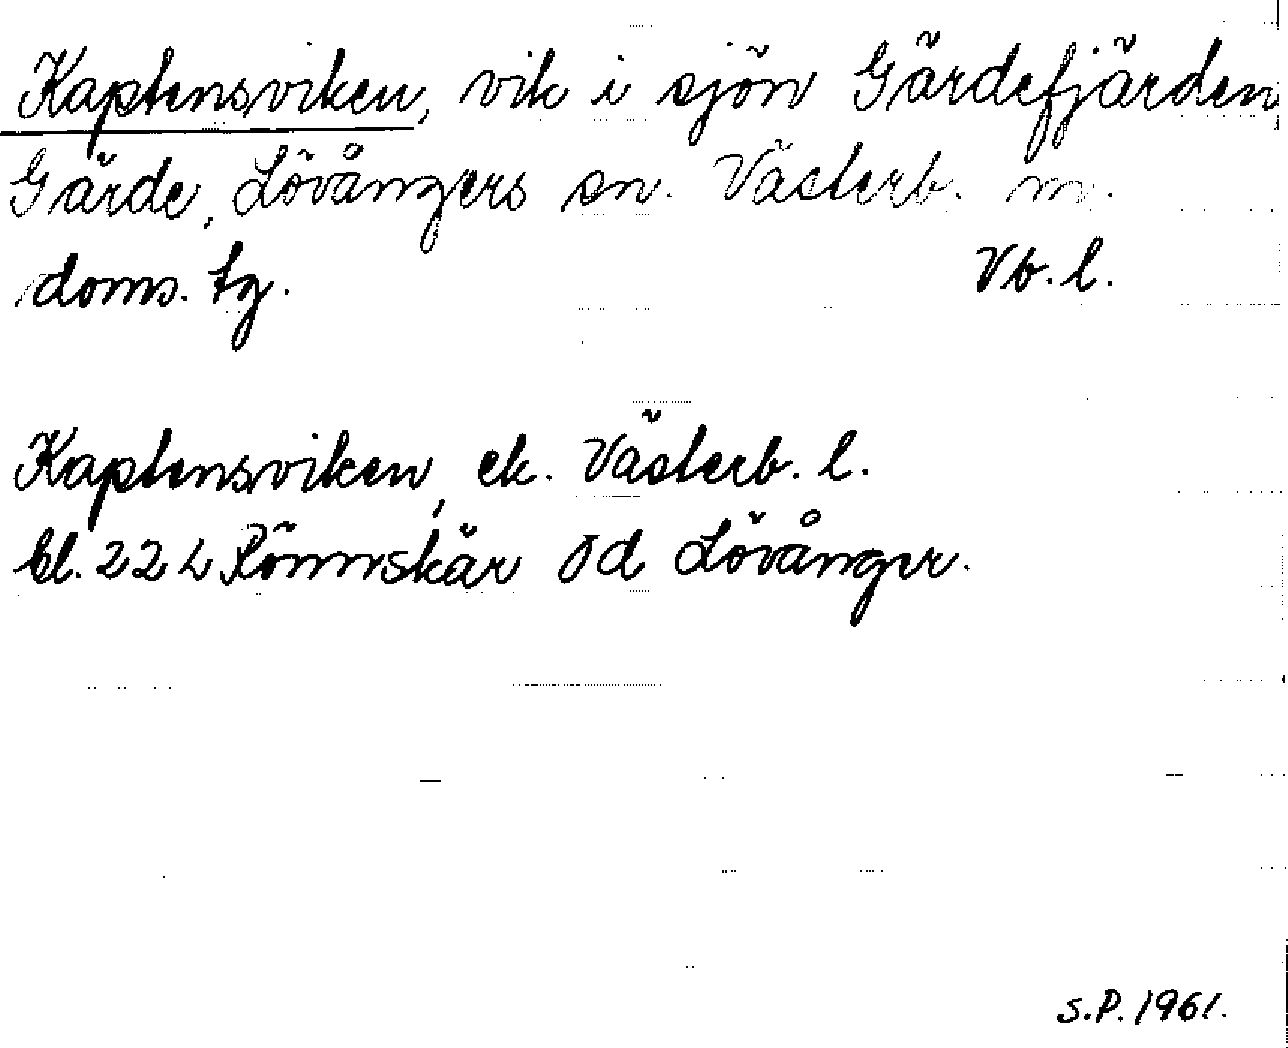 Kaptensviken, vik i sjön Gärdefjärden
Gärde, Lövångers sn. Västerb. m.
doms. tg. Vb. l.
Kaptensviken, ek. Västerb. l.
bl. 22 L Rönnskär Öd Lövånger.
S.P. 1961.